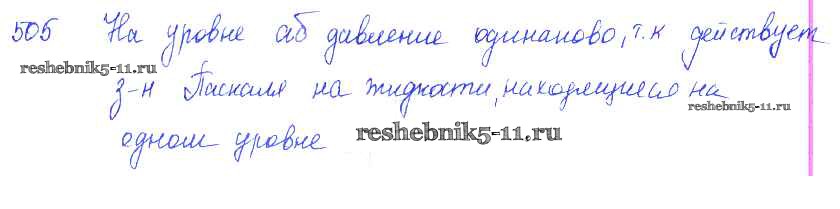 505 На уровне аб давление одинаково, т.к действует
reshebnik5-11.ru
з-н Паскаля на жидкости, находящиеся на
reshebnik5-11.ru
одном уровне reshebnik5-11.ru